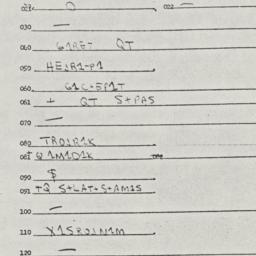 030 —
040 61RET QT
050 HE1R1-P1
060 61C-EP1T
061 + QT S+PAS
070 —
080 TR01R1K
081 Q1M1D1K
090 $
091 +Q S+LAT+S+AM1S
100 —
110 X1SR01N1M
120 —